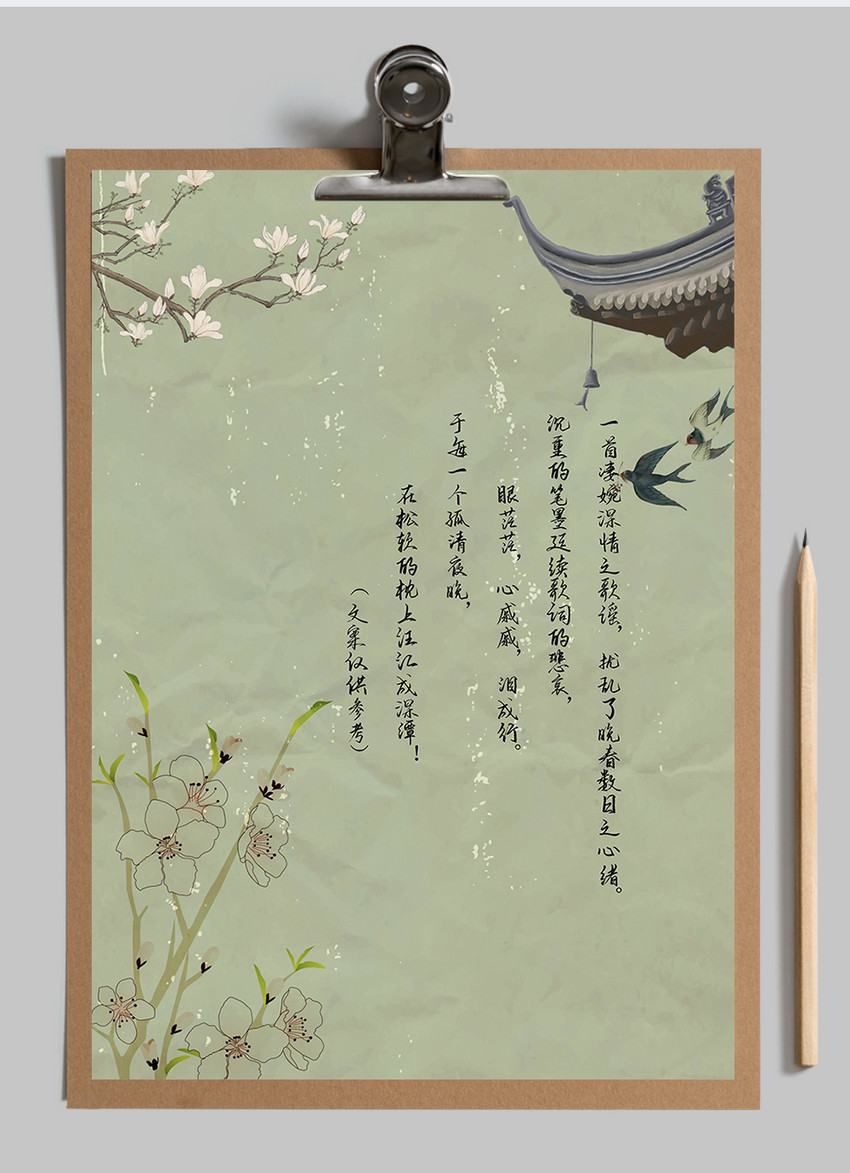 一首凄婉深情之歌谣，扰乱了晚春数日之心绪。
沉重的笔墨延续歌词的悲哀，
眼茫茫，心戚戚，泪成行。
于每一个孤清夜晚，
在松软的枕上汪汇成深潭！
（文案仅供参考）